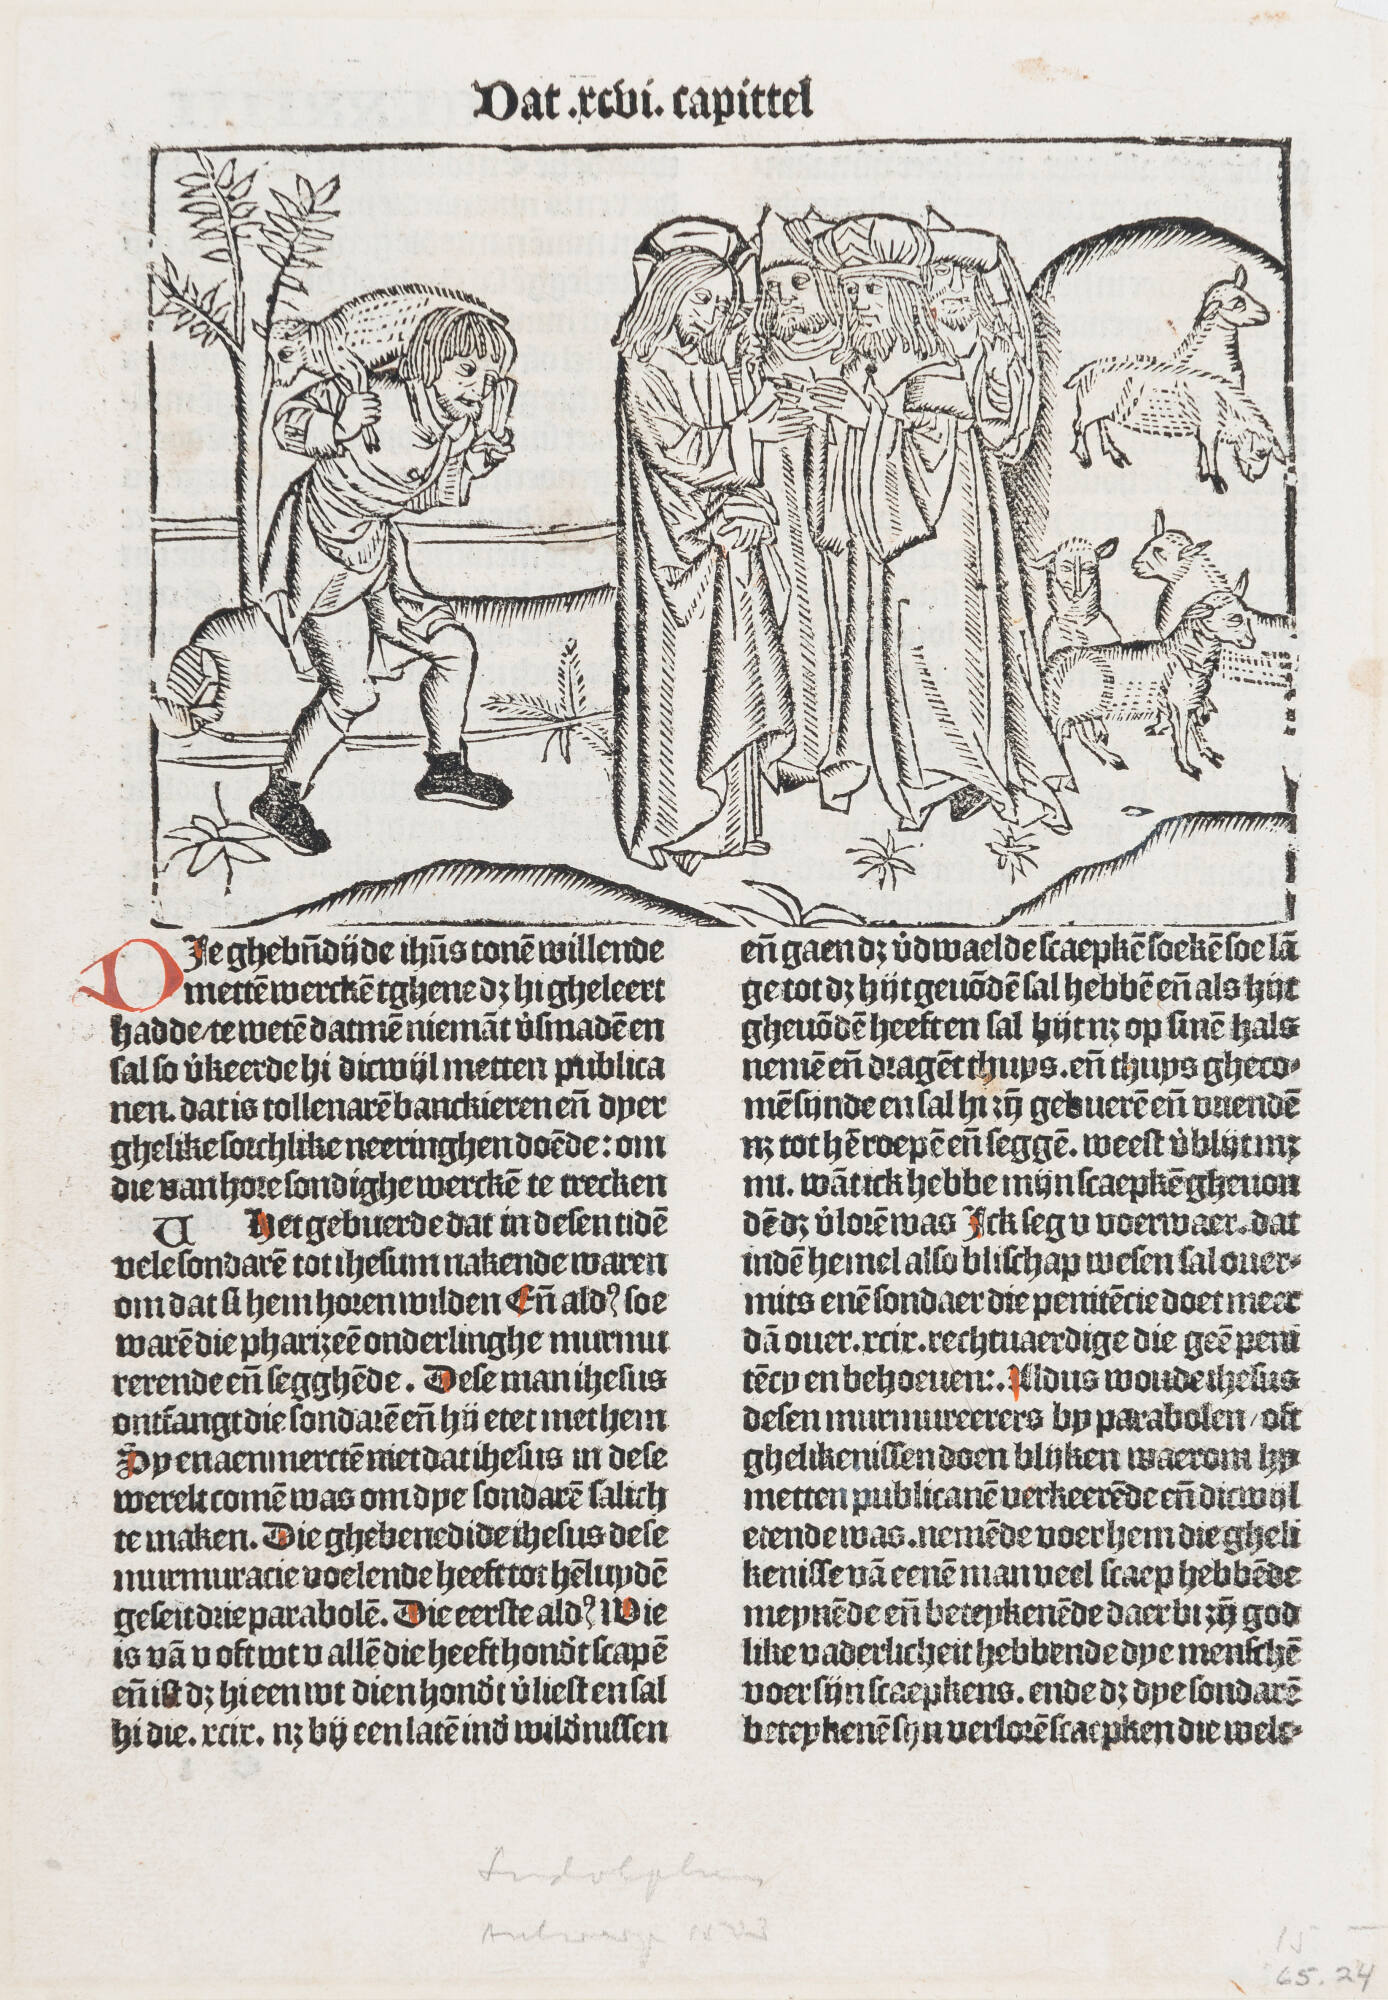 Dat .xcvi. capittel
DJe ghebn̄dijde ihūs tonē willende
mettē werckē tghene dꝫ hi gheleert
hadde/te wetē datmē niemāt v̓smadē en
sal so v̓keerde hi dicwijl metten publica
nen. dat is tollenarē banckieren en̄ dyer
ghelike sorchlike neeringhen doēde: om
die van hore sondighe werckē te trecken
U Het gebuerde dat in desen tidē
vele sondarē tot ihesum nakende waren
om dat si hem horen wilden En̄ ald᷒ soe
warē die pharizeē onderlinghe murmu
rerende en̄ segghēde. Dese man ihesus
ontfangt die sondarē en̄ hij etet met hem
Hy en aenmerctē niet dat ihesus in dese
werelt comē was om dye sondarē salich
te maken. Die ghebenedide ihesus dese
murmuracie voelende heeft tot hēluydē
geseit drie parabolē. Die eerste ald᷒ Wie
is vā v oft wt v allē die heeft hond̓t scapē
en̄ ist dꝫ hi een wt dien hond̓t v̓liest en sal
hi die. xcix. nꝫ bij een latē ind̓ wild̓nissen
en̄ gaen dꝫ v̓dwaelde scaepkē soekē soe lā
ge tot dꝫ hijt geuōdē sal hebbē en̄ als hijt
gheuōdē heeft en sal hijt nꝫ op sinē hals
nemē en̄ dragēt thuys. en̄ thuys gheco-
mē sijnde en sal hi zij gebuerē en̄ vriendē
nꝫ tot hē roepē en̄ seggē. weest v̓blijt mꝫ
mi. wāt ick hebbe mijn scaepkē gheuon
dē dꝫ v̓lorē was Ick seg v voerwaer. dat
indē hemel also blischap wesen sal ouer-
mits enē sondaer die penitēcie doet meer
dā ouer. xcix. rechtuaerdige die geē peni
tēcy en behoeuen:. Aldus woude ihesus
desen murmureerers by parabolen/oft
ghelikenissen doen blijken waerom hy
metten publicanē verkeerēde en̄ dicwijl
etende was. nemēde voer hem die gheli
kenisse vā eenē man veel scaep hebbēde
meynēde en̄ beteykenēde daer bi zij god
like vaderlicheit hebbende dye menschē
voer sijn scaepkens. ende dꝫ dye sondarē
beteykenē sijn verlorē scaepken die welc-
Ludolphus
Antwerp 1503
15 —
65.24